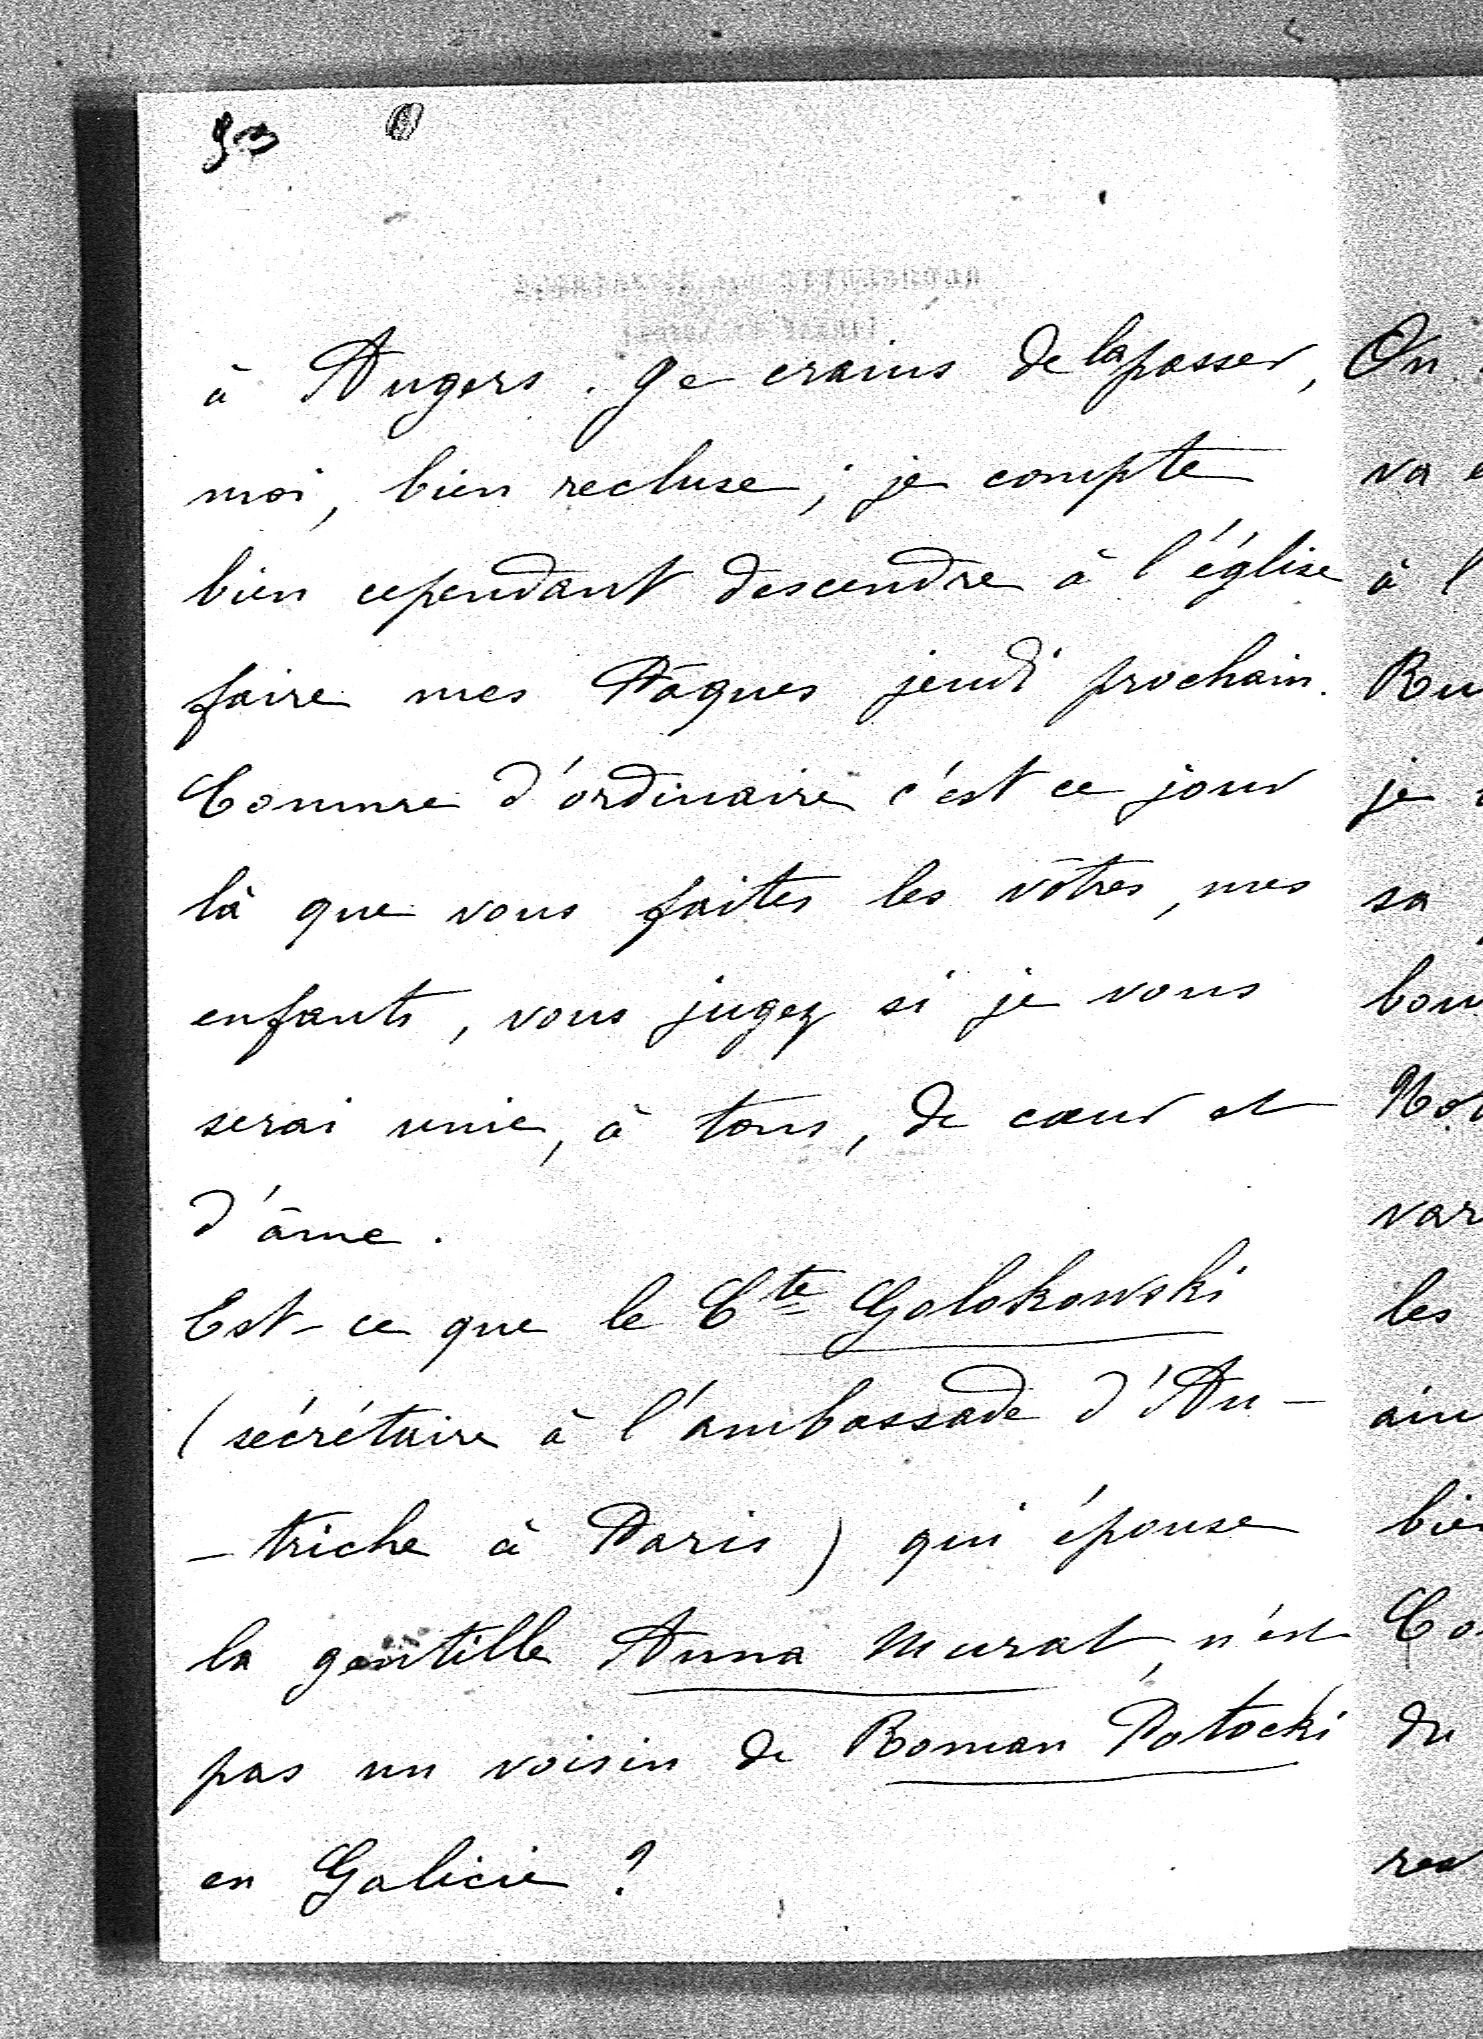 53
à Angers. Je crains de la passer,
moi, bien recluse; je compte
bien cependant descendre à l'église
faire mes Pâques jeudi prochain.
Comme d'ordinaire c'est ce jour
là que vous faites les vôtres, mes
enfants, vous jugez si je vous
serai unie, à tous, de cœur et
d'âme.
Est-ce que le Cte Golokowski
(sécrétaire à l'ambassade d'Au-
-triche à Paris) qui épouse
la gentille Anna Murat, n'est
pas un voisin de Roman Potocki
en Galicie?
On
va
à l
Ru
je
sa
bon
Not
var
les
ain
bien
Co
du